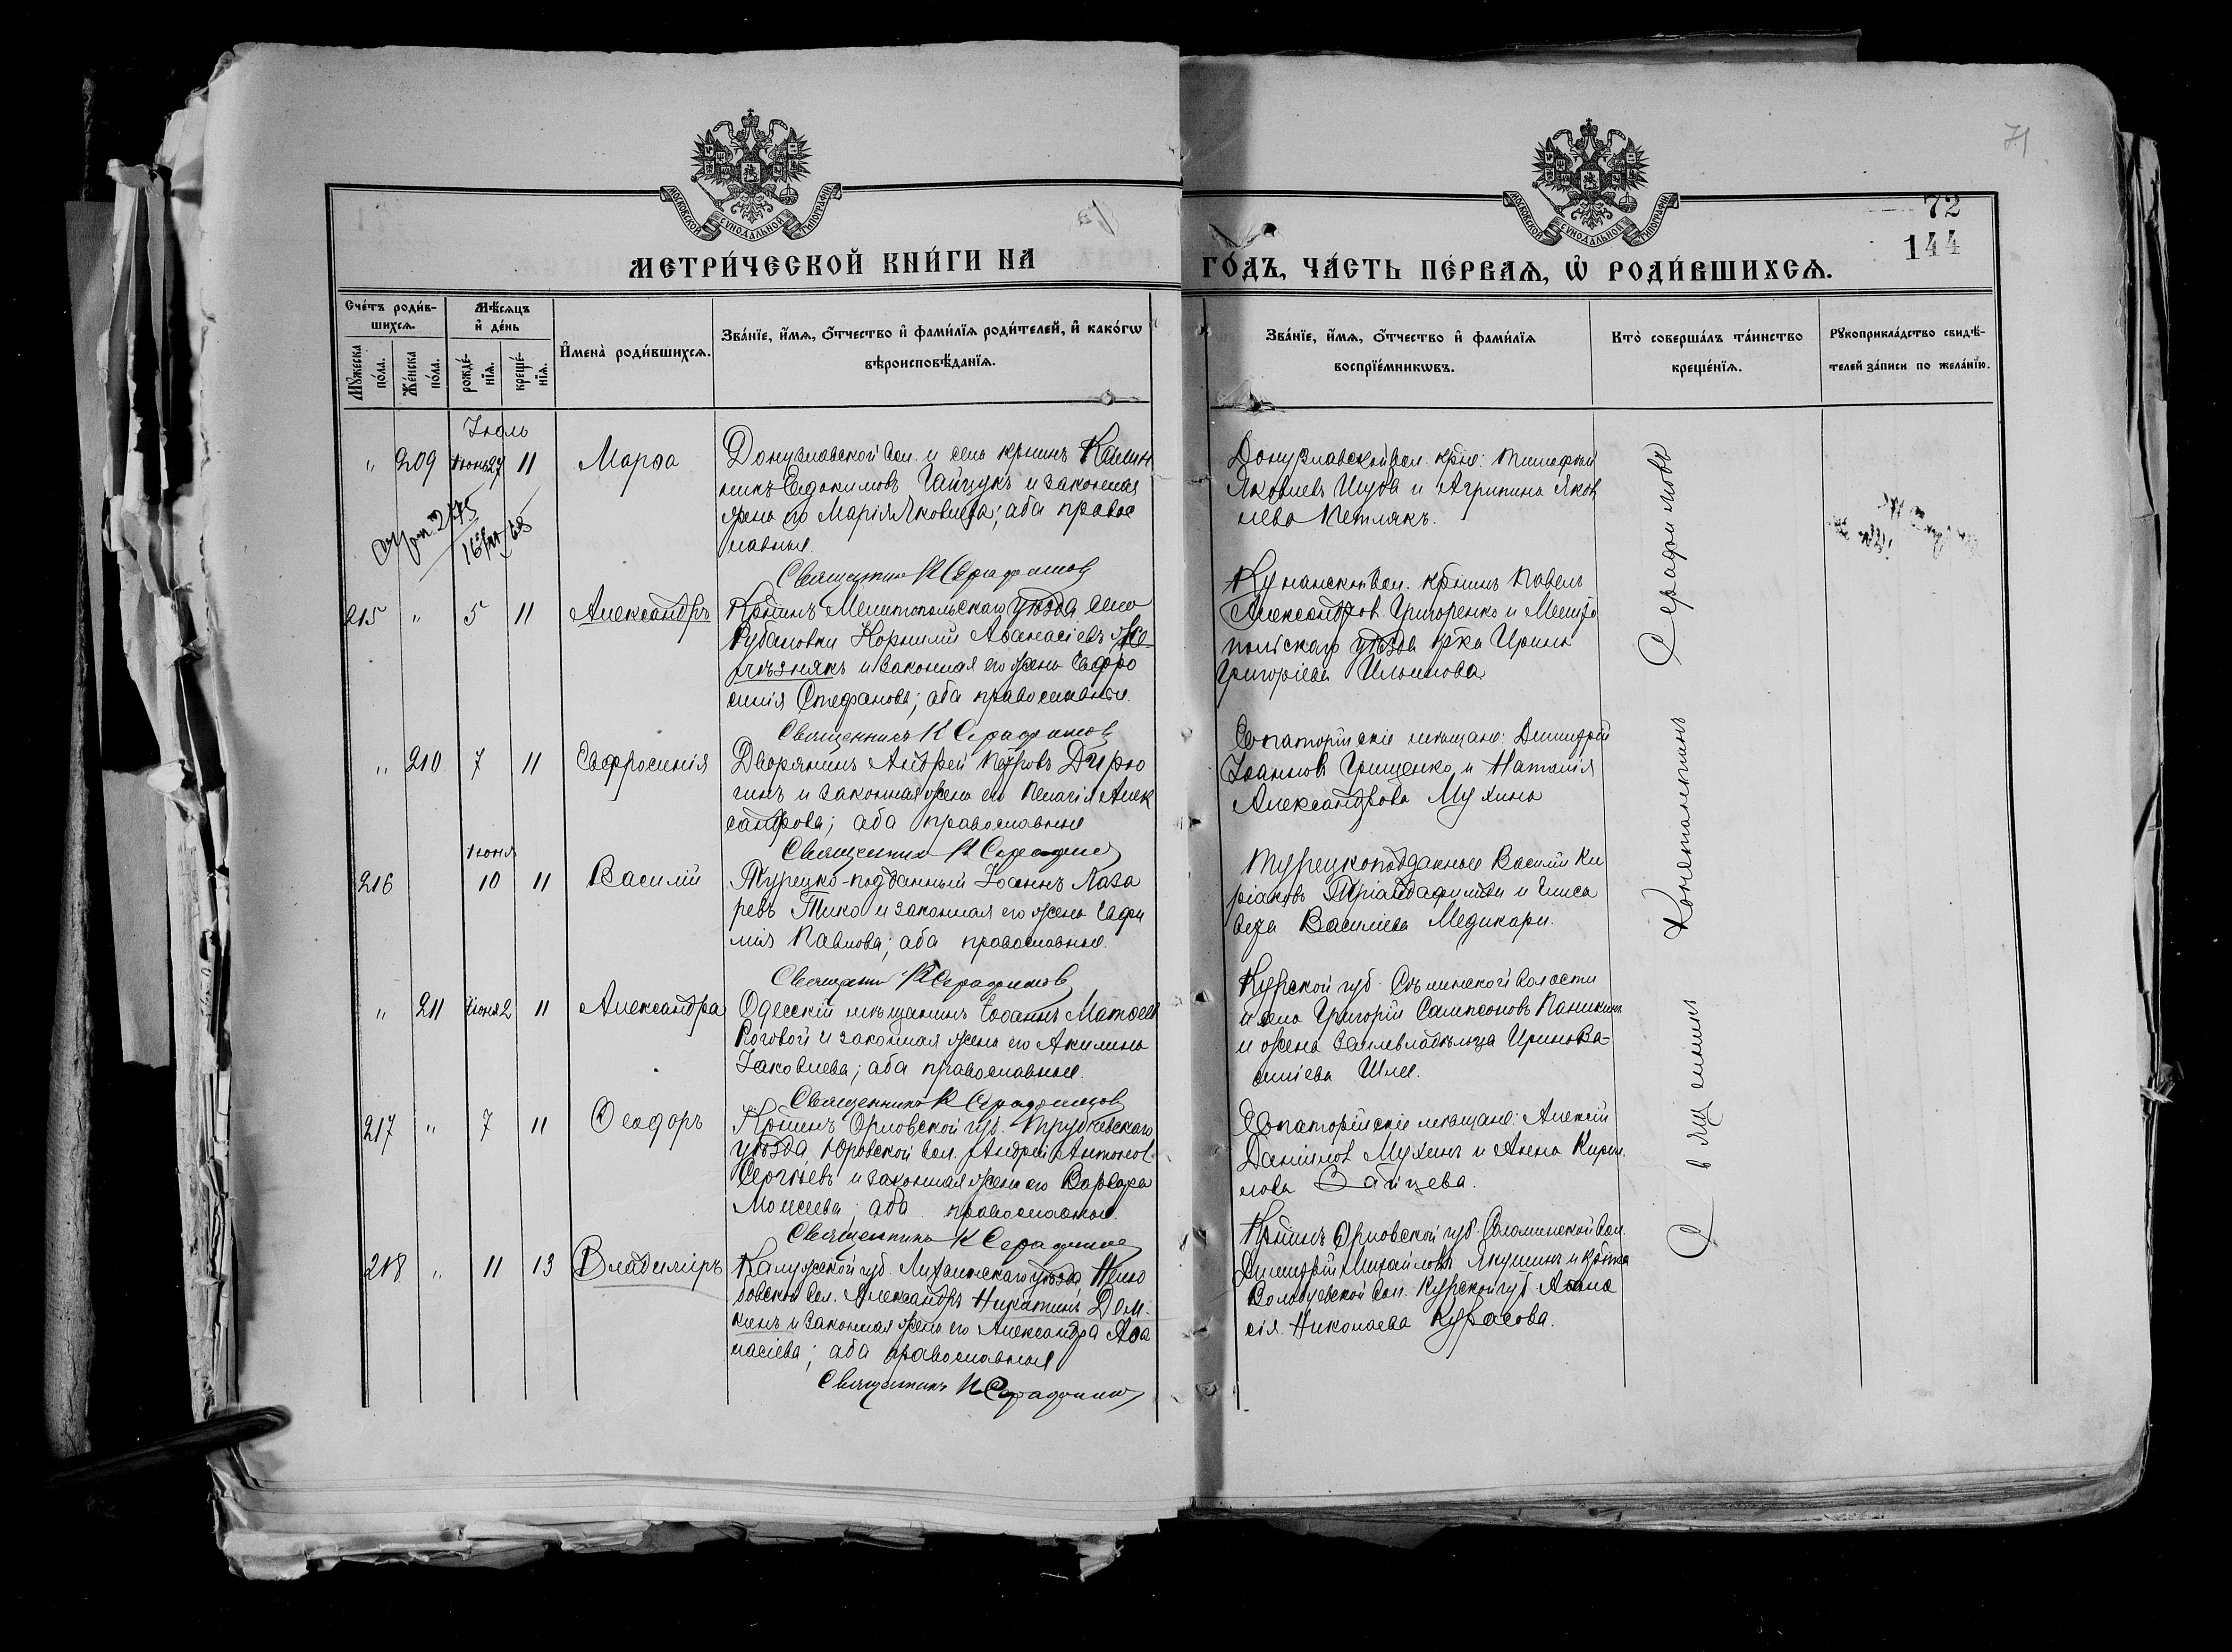 71
72
144
МОСКОВСКОЙ СѴНОДАЛЬНОЙ ТИПОГРАФІИ
МОСКОВСКОЙ СѴНОДАЛЬНОЙ ТИПОГРАФІИ
МЕТРИ́ЧЕСКОЙ КНИ́ГИ НА
ГО́ДЪ, ЧА́СТЬ ПЕ́РВАѦ, Ѡ҆ РОДИ́ВШИХСѦ.
Сче́тъ роди́в-
шихсѧ.
Мѣ́сѧцъ
и҆ де́нь
Мꙋ́жеска
по́ла.
Же́нска
по́ла.
рожде́-
нїѧ.
креще́-
нїѧ.
И҆мена̀ роди́вшихсѧ.
Зва́нїе, и҆́мѧ, ѻ҆́тчество и҆ фами́лїѧ роди́телей, и҆ како́гѡ
вѣроисповѣ́данїѧ.
Зва́нїе, и҆́мѧ, ѻ҆́тчество и҆ фами́лїѧ
воспрїе́мникѡвъ.
Кто̀ соверша́лъ та́инство
креще́нїѧ.
Рꙋкоприкла́дство свидѣ́-
телей за́писи по жела́нїю.
Іюль
" 209 Іюнь 27 11 Марѳа
Донузлавской вол. и села крнинъ Калин
никъ Евдокимовъ Гайдукъ и законная
жена его Марія Яковлева; оба правос
лавные.
Священникъ К Серафимов
Донузлавской вол. крне: Тимофей
Яковлевъ Шуба и Агрипина Яков
лева Петлякъ.
215 " 5 11 Александръ
Крнинъ Мелитопольскаго уѣзда села
Рубановки Корнилій Аѳанасіевъ Же-
лѣзнякъ и законная его жена Евфро
синія Стефанова; оба православные.
Священникъ К Серафимов
вол. крнинъ Павелъ
Александров Григоренко и Мелито
польскаго уѣзда крка Ирина
Григоріева
" 210 7 11 Евфросинія
Дворянинъ Андрей Петровъ
и законная жена его Пелагія Алек
сандрова; оба православные
Священникъ К Серафимов
Евпаторійскіе мѣщане: Димитрій
Іоанновъ Грищенко и Наталія
Александрова Мухина
216 Іюня 10 11 Василій
Турецко-подданный Іоаннъ Лаза
ревъ Тико и законная его жена Евфи
мія Павлова; оба православные.
Священникъ К Серафимовъ
Турецкоподданные Василій Ки
ріаковъ и Елиса
вета Василіева Медикари.
" 211 Іюня 2 11 Александра
Одесскій мѣщанинъ Іоаннъ Матѳеев
Роговой и законная жена его Акилина
Іаковлева; оба православные.
Священникъ К Серафимов
Курской губ. волости
и села Григорій Сампсоновъ Паникинъ
и жена землевладѣльца Ирина Ва-
силіева Шлее.
217 " 7 11 Ѳеодоръ
Крнинъ Орловской губ. Трубчевскаго
уѣзда Юровской вол. Андрей Антонов
Сергѣевъ и законная жена его Варвара
Моисеева; оба православные.
Священникъ К Серафимов
Евпаторійскіе мѣщане: Алексій
Даніилов Мухинъ и Анна Кирил
лова Зайцева.
218 " 11 13 Владиміръ
Калужской губ. Лихвинскаго уѣзда
вол. Александръ Никитинъ Дом-
кинъ и законная жена его Александра Аѳа
насіева; оба православные
Священникъ К Серафимов
Крнинъ Орловской губ. вол.
Димитрій Михайловъ Якушинъ и крнка
вол. Курской губ
Николаева Курасова.
Священникъ Константинъ Серафимовъ